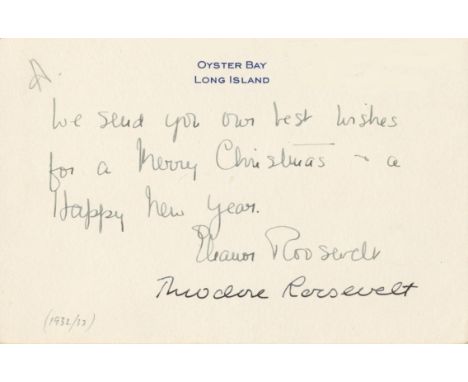 OYSTER BAY
LONG ISLAND
We send you our best wishes
for a Merry Christmas & a
Happy New Year.
Eleanor Roosevelt
Theodore Roosevelt